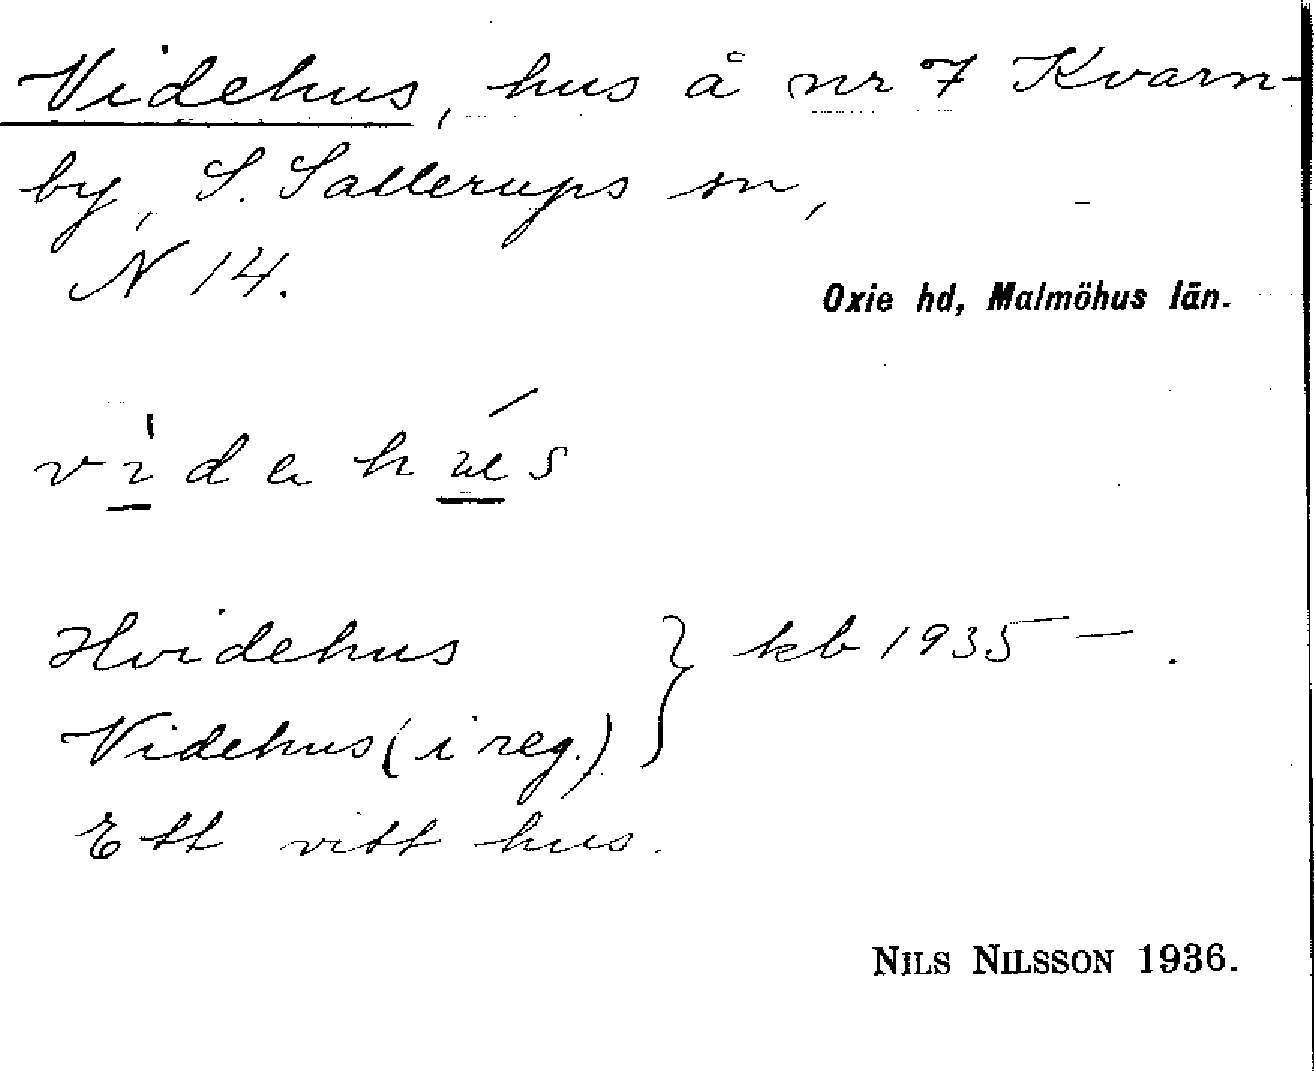 Videhus, hus å nr 7 Kvarn-
by, S. Sallerups sn,
N 14.
Oxie hd, Malmöhus län.
vìdahús
Hvidehus } kb 1935 — .
Videhus (i reg.)
Ett vitt hus.
NILS NILSSON 1936.